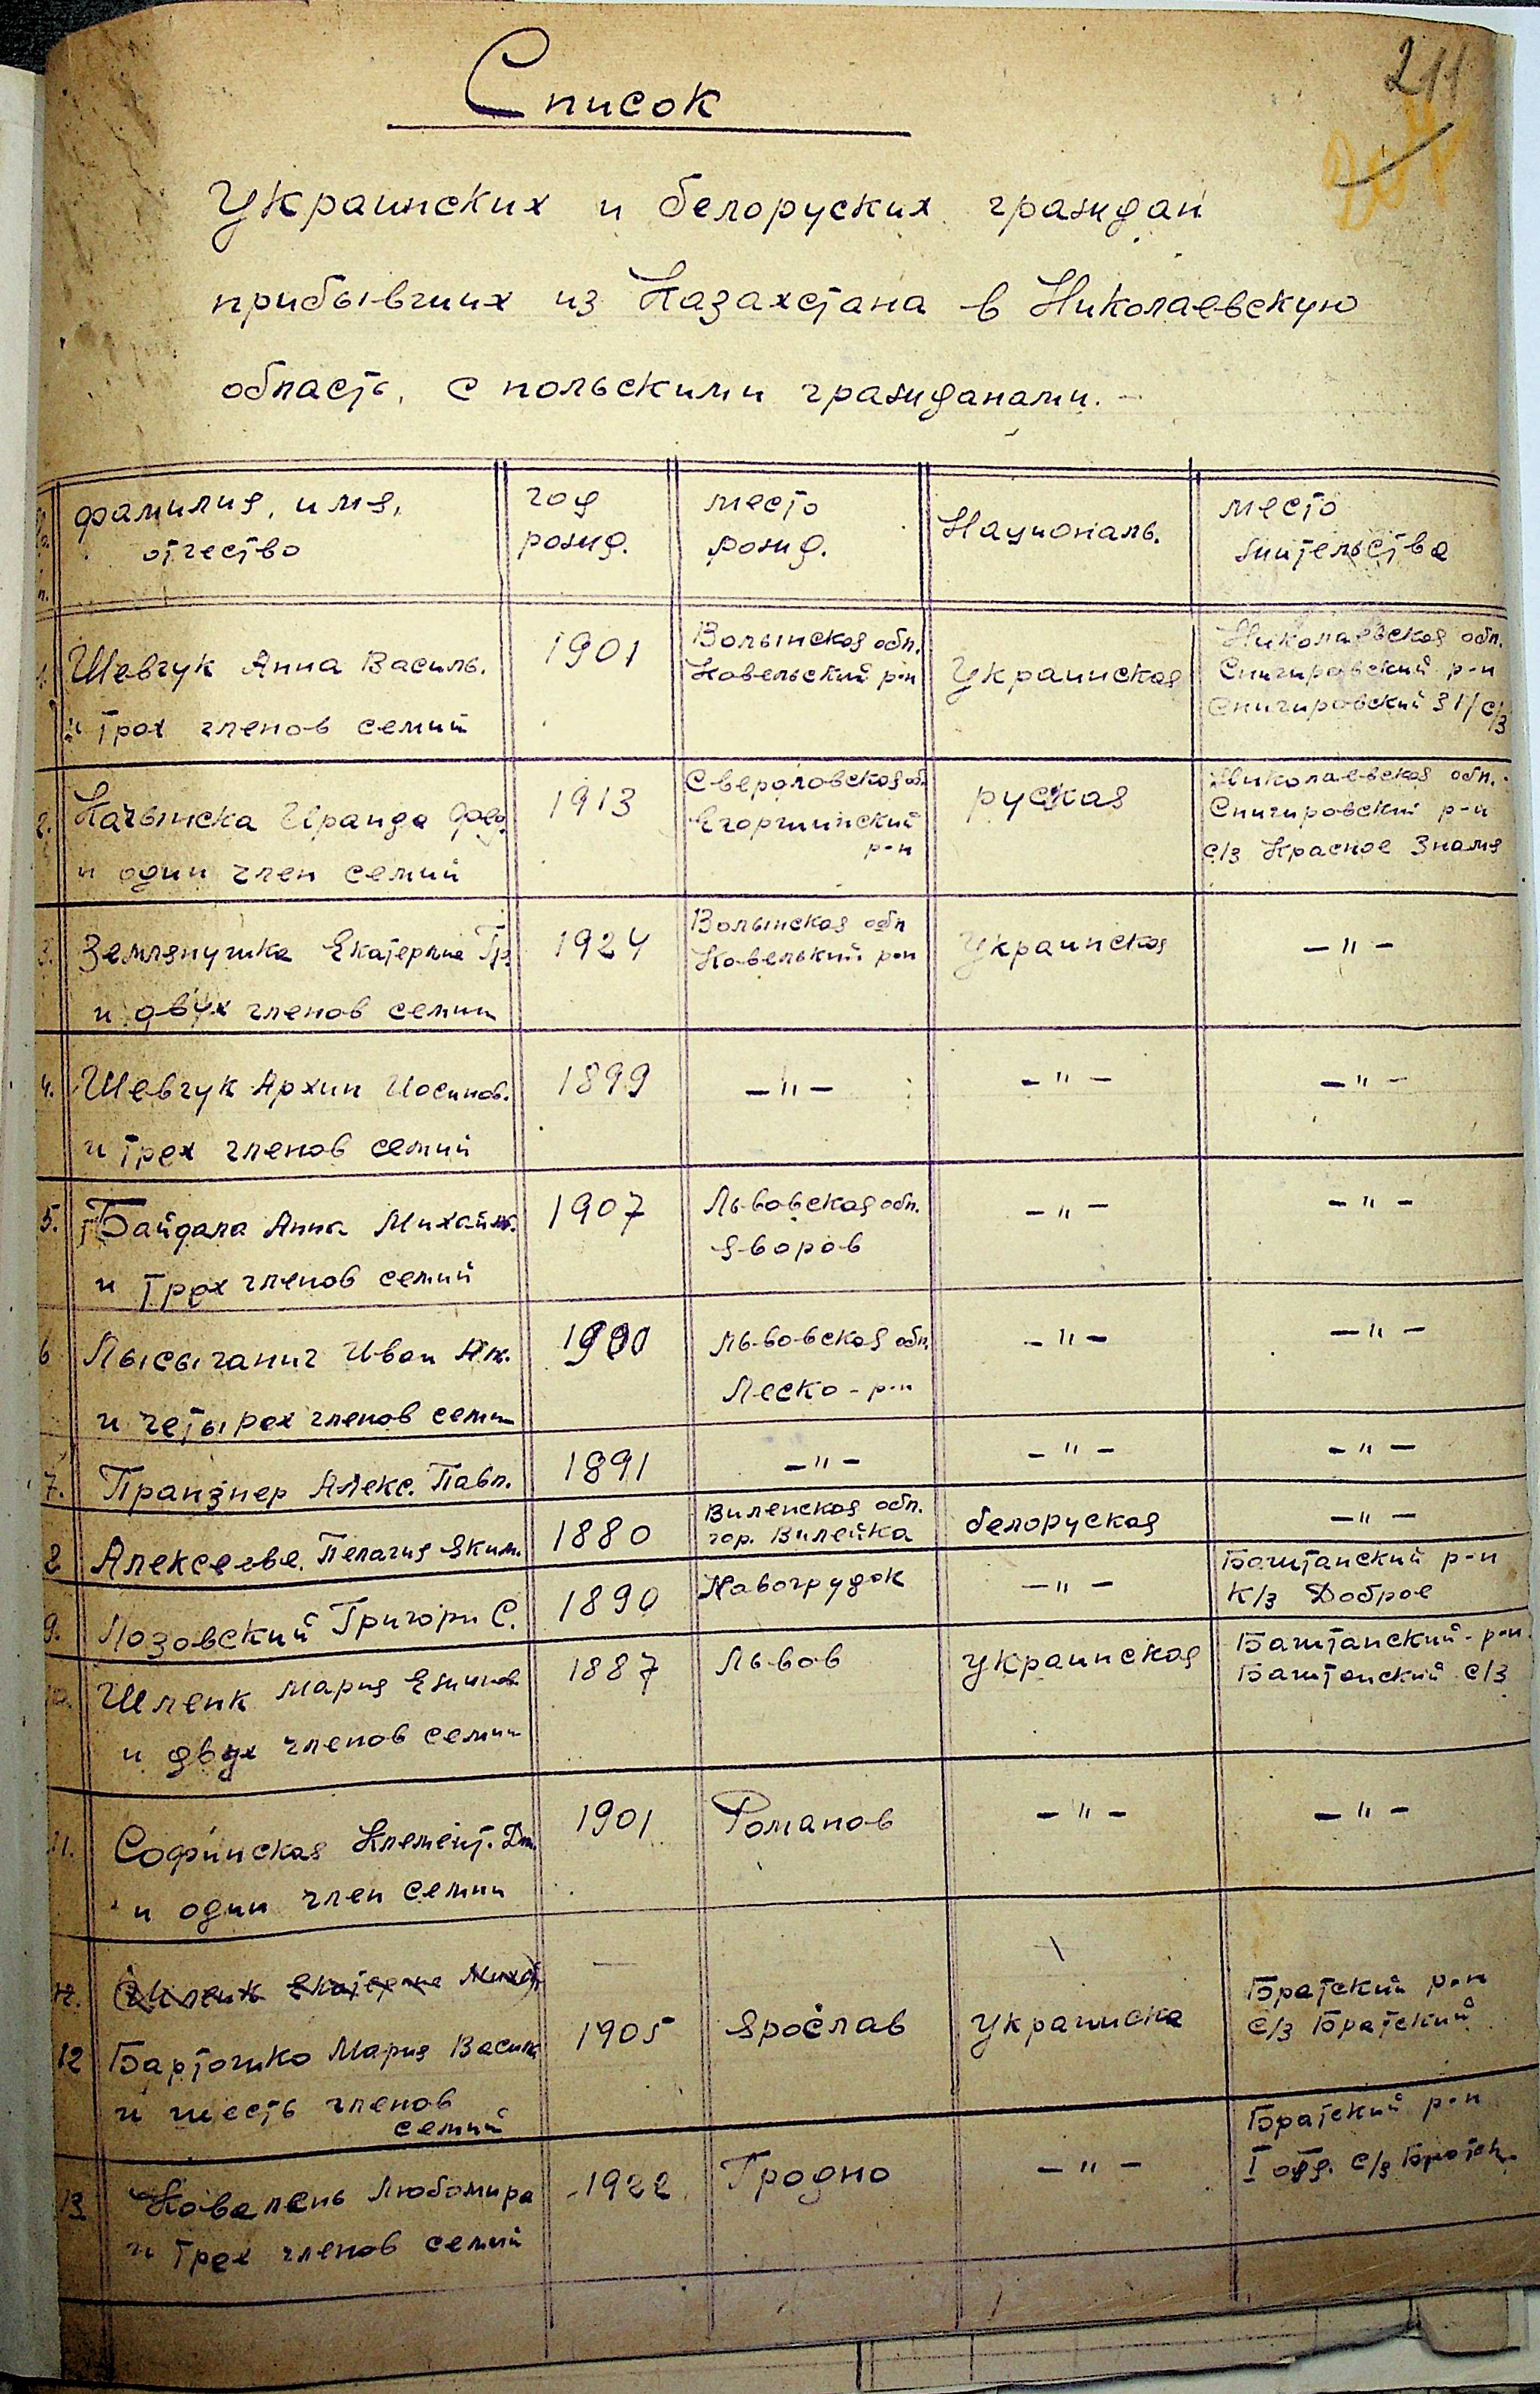 211
204
Список
Украинских и белоруских граждан
прибывших из Казахстана в Николаевскую
область, с польскими гражданами.-
фамилия, имя, отчество год рожд. место рожд. Националь. место жительства
1. Шевчук Анна Василь. 1901 Волынская обл. Ковельский р-н Украинская Николаевская обл. Снигиревский р-н Снигировский с/з
и трох членов семий
2. Качынска Ираида Фед. 1913 Свердловская об. Егоршинский р-н руская Николаевская обл. Снигировский р-н с/з Красное Знамя
и один член семий
3. Земляпушка Екатерина Гр. 1924 Волынская обл Ковельский р-н Украинская -"-
и двух членов семии
4. Шевчук Архип Иосипов. 1899 -"- -"- -"-
и трех членов семий
5. Байдала Анна Михайл. 1907 Львовская обл. Яворов -"- -"-
и трех членов семий
6 Лысычанич Иван Як. 1900 Львовская обл. Леско-р-н -"- -"-
и четырех членов семии
7. Пранзнер Алекс. Павл. 1891 -"- -"- -"-
8 Алексеева Пелагия Яким. 1880 Виленская обл. гор. Вилейка белоруская -"-
9. Лозовский Григори С. 1890 Навогрудок -"- Баштанский р-н к/з Доброе
10. Шленк Мария 1887 Львов Украинская Баштанский-р-н. Баштанский с/з
и двух членов семии
11. Софинская Клемент. Дм. 1901 Романов -"- -"-
и один член семии
12. Шленк Екатерина Михай. —
12 Бартошко Мария Васил. 1905 Ярослав Украинска Братский р-н с/з Братский
и шесть членов
семий
13. Ковалень Любомира 1922 Гродно -"- Братский р-н I отд. с/з Братск.
и трех членов семий